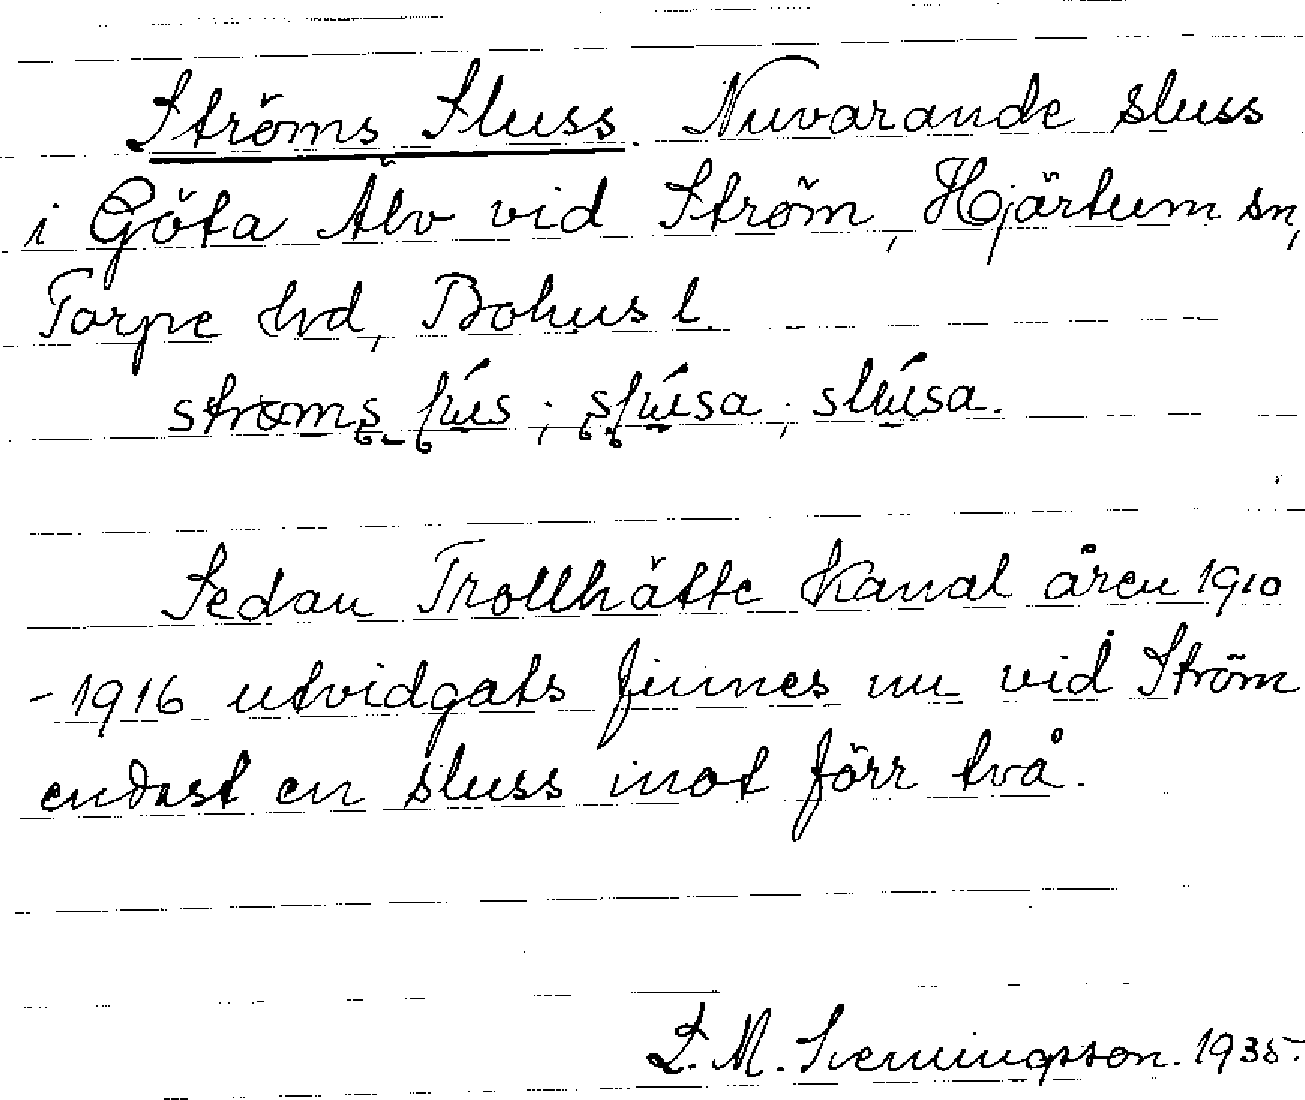 Ströms Sluss. Nuvarande sluss
i Göta Älv vid Ström, Hjärtum sn,
Torpe hd, Bohus l.
Sedan Trollhätte Kanal åren 1910
-1916 utvidgats finnes nu vid Ström
endast en sluss mot förr två.
L. M. Svenningsson. 1935.